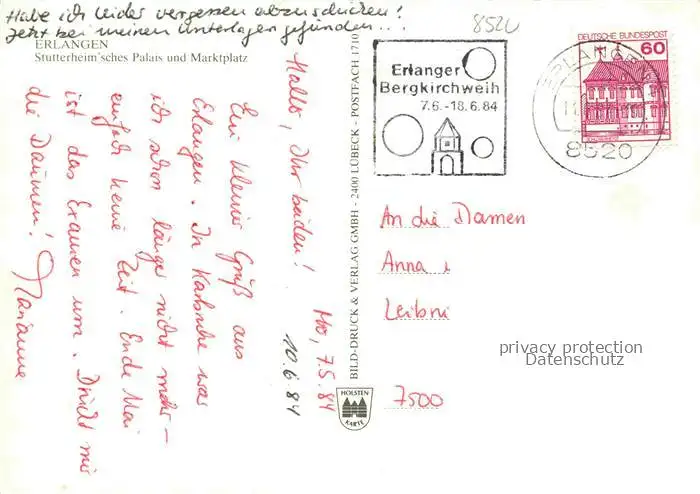 Habe ich leider vergessen abzuschicken!
Jetzt bei meinen Unterlagen gefunden...!
8520
ERLANGEN
Stutterheim'sches Palais und Marktplatz
Mo, 7.5.84
10.6.84
Hallo, Ihr beiden!
Ein kleiner Gruß aus
Erlangen. In Karlsruhe war
ich schon länger nicht mehr –
einfach keine Zeit. Ende Mai
ist das Examen um. Drückt mir
die Daumen! Marianne
BILD-DRUCK & VERLAG GMBH - 2400 LÜBECK - POSTFACH 1710
HOLSTEN
KARTE
Erlanger
Bergkirchweih
7.6.-18.6.84
DEUTSCHE BUNDESPOST
60
ERLANGEN
8520
An die Damen
Anna
Leibni
7500
privacy protection
Datenschutz